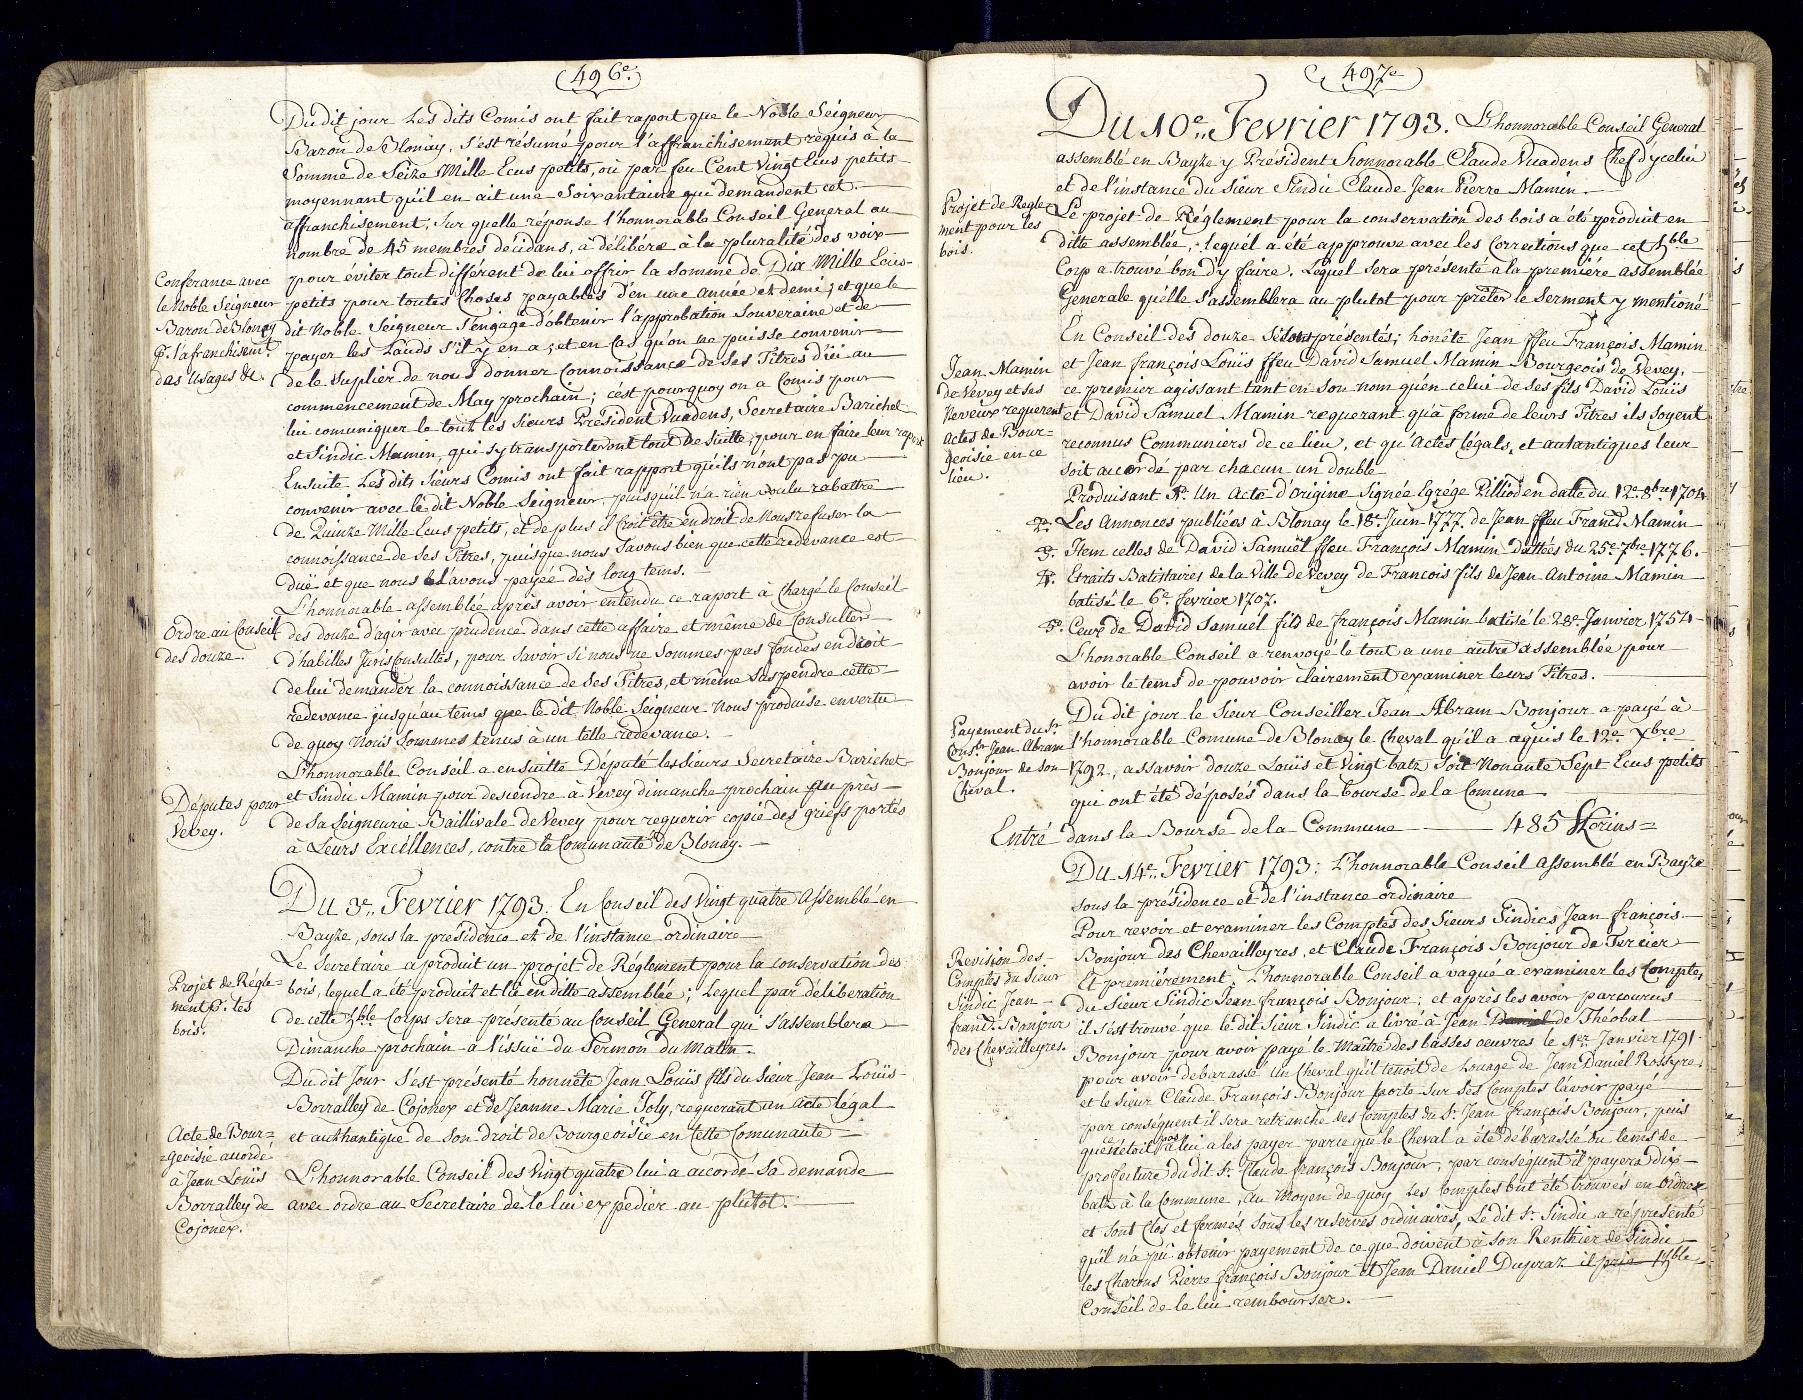 496e.
Du dit jour Les dits Comis ont fait raport que le Noble Seigneur
Baron de Blonay, s'est résumé pour l'affranchisement requis à la
Somme de Seize Mille Ecus petits, ou par feu Cent Vingt Ecus petits
moyennant qu'il en ait une Soixantaine qui demandent cet
affranchisement; Sur quelle réponse l'honnorable Conseil General au
nombre de 45 membres décidans, à délibéré à la pluralité des voix
Conferance avec
le Noble Seigneur
Baron de Blonay
Pr. l'afranchisemt.
des Usages &c.
pour éviter tout différent de lui offrir la Somme de Dix Mille Ecus
petits pour toutes Choses payables d'en une année et demi; et que le
dit Noble Seigneur s'engage d'obtenir l'approbation Souveraine et de
payer les Lauds s'il y en a; et en Cas qu'on ne puisse convenir
de le Suplier de nous donner Connoissance de Ses Titres d'ici au
commencement de May prochain; c'est pourquoy on a Comis pour
lui comuniquer le tout les Sieurs Président Vuadens, Secretaire Barichet
et Sindic Mamin, qui s'y transporteront tout de Suitte, pour en faire leur raport
Ensuite Les dits Sieurs Comis ont fait rapport qu'ils n'ont pas pu
convenir avec le dit Noble Seigneur, puisqu'il n'a rien voulu rabattre
de Quinze Mille Ecus petits, et de plus il Croit être en droit de Nous refuser la
connoissance de Ses Titres, puisque nous Savons bien que cette redevance est
duë et que nous l'avons payée dès long tems.
L'honnorable assemblée après avoir entendu ce raport à Chargé le Conseil
Ordre au Conseil
des douze
des douze d'agir avec prudence dans cette affaire et même de Consulter
d'habilles Jurisconsultes, pour Savoir Si nous ne Sommes pas fondes en droit
de lui demander la connoissance de Ses Titres, et même Suspendre cette
redevance jusqu'au tems que le dit Noble Seigneur nous produise en vertu
de quoy nous Sommes tenus à un telle redevance.
L'honnorable Conseil a ensuitte Député les Sieurs Secretaire Barichet
Députes pour
Vevey.
et Sindic Mamin pour descendre à Vevey dimanche prochain près
de Sa Seigneurie Baillivale de Vevey pour requerir copie des griefs portés
à Leurs Excéllences, contre la Comunauté de Blonay.
Du 3e. Fevrier 1793. En Conseil des Vingt quatre Assemblé en
Bayze, sous la présidence et de l'instance ordinaire
Projet de Régle=
ment pr. les
bois.
Le Secretaire a produit un projet de Réglement pour la conservation des
bois, lequel a été produit et lû en ditte assemblée; Lequel par déliberation
de cette hble Corps Sera présenté au Conseil General qui s'assemblera
Dimanche prochain à l'issuë du Sermon du Matin.
Du dit Jour S'est présenté honnête Jean Louïs fils du Sieur Jean Louïs
Borralley de Cojonex et de Jeanne Marie Joly, requerant un acte légal
Acte de Bour=
=geoisie accordé
à Jean Louïs
Borralley de
Cojonex.
et authantique de Son droit de Bourgeoisie en Cette Comunauté
L'honnorable Conseil des Vingt quatre lui a accordé Sa demande
avec ordre au Secretaire de le lui expedier au plutot.
497e
Du 10e. Fevrier 1793. L'honnorable Conseil General
assemblé en Bayze y Président honnorable Claude Vuadens Chef d'ycelui
et de l'instance du Sieur Sindic Claude Jean Pierre Mamin.
Projet de Regle-
ment pour les
bois.
Le projet de Réglement pour la conservation des bois a été produit en
ditte assemblée, lequél a été approuvé avec les Corrections que cet hble
Corp a trouvé bon d'y faire. Lequel Sera présenté a la première assemblée
Generale qu'élle s'assemblera au plutot pour prêter le Serment y mentioné
En Conseil des douze se sont présentés; honête Jean ffeu François Mamin
Jean Mamin
de Vevey et ses
Neveux requerent
actes de Bour=
geoisie en ce
lieu.
et Jean françois Louïs ffeu David Samuel Mamin Bourgeois de Vevey.
ce premier agissant tant en Son nom qu'en celui de Ses fils David Louïs
et David Samuel Mamin requerant qu'à forme de leurs Titres ils Soyent
reconnus Communiers de ce lieu, et qu'Actes légals, et autantiques leur
Soit accordé par chacun un double
Produisant 1o. Un Acte d'Origine Signée Egrége Pilliod en datte du 12e. 8bre 1704
2o. Les Annonces publiées à Blonay le 18e. Juin 1777. de Jean ffeu Frans. Mamin
3o. Item celles de David Samuël ffeu François Mamin dattés du 25e. 7bre 1776.
4o. Etraits Batistaires de la Ville de Vevey de Francois fils de Jean Antoine Mamin
batisé le 6e. fevrier 1707.
5o. Ceux de David Samuël fils de françois Mamin batisé le 28e. Janvier 1754
L'honorable Conseil a renvoyé le tout a une autre assemblée pour
avoir le tems de pouvoir clairement examiner leurs Titres.
Payement du Sr.
Consler. Jean Abram
Bonjour de Son
Cheval.
Du dit jour le Sieur Conseiller Jean Abram Bonjour a payé à
l'honnorable Comune de Blonay le Cheval qu'il a aquis le 12e. Xbre
1792, assavoir douze Louïs et Vingt batz Soit Nonante Sept Ecus petits
qui ont été déposés dans la Bourse de la Comune
Entré dans la Bourse de la Commune 485 Florins=
Du 14e. Fevrier 1793: L'honnorable Conseil assemblé en Bayze
sous la présidence et de l'instance ordinaire
Pour revoir et examiner les Comptes des Sieurs Sindics Jean françois
Bonjour des Chevailleyres, et Claude François Bonjour de Tercier
Revision des
Comptes du Sieur
Sindic Jean
frans. Bonjour
des Chevailleyres.
Et premiérement, L'honnorable Conseil a vaqué a examiner les Comptes
du Sieur Sindic Jean françois Bonjour; et après les avoir parcourus
il s'est trouvé que le dit Sieur Sindic a livré à Jean Daniel de Théobal
Bonjour pour avoir payé le Maître des basses oeuvres le 1er. Janvier 1791.
pour avoir debarassé un Cheval qu'il tenoit de Louage de Jean Daniel Rossyre.
et le Sieur Claude François Bonjour porte Sur Ses Comptes l'avoir payé
par conséquent il sera retranché des Comptes du Sr. Jean françois Bonjour, puis
que ce n'étoit pas à lui a les payer parce que le Cheval a été débarassé du tems de
profecture du dit Sr. Claude françois Bonjour, par conséquent il payera dix
batz à la Commune, au moyen de quoy Les Comptes ont été trouvés en Ordre
et Sont Clos et fermés Sous les reserves ordinaires, Le dit Sr. Sindic a représenté
qu'il n'a pû obtenir payement de ce que doivent à Son Renthier de Sindic
les Charons Pierre françois Bonjour et Jean Daniel Dupraz il prie l'hble
Conseil de le lui rembourser.